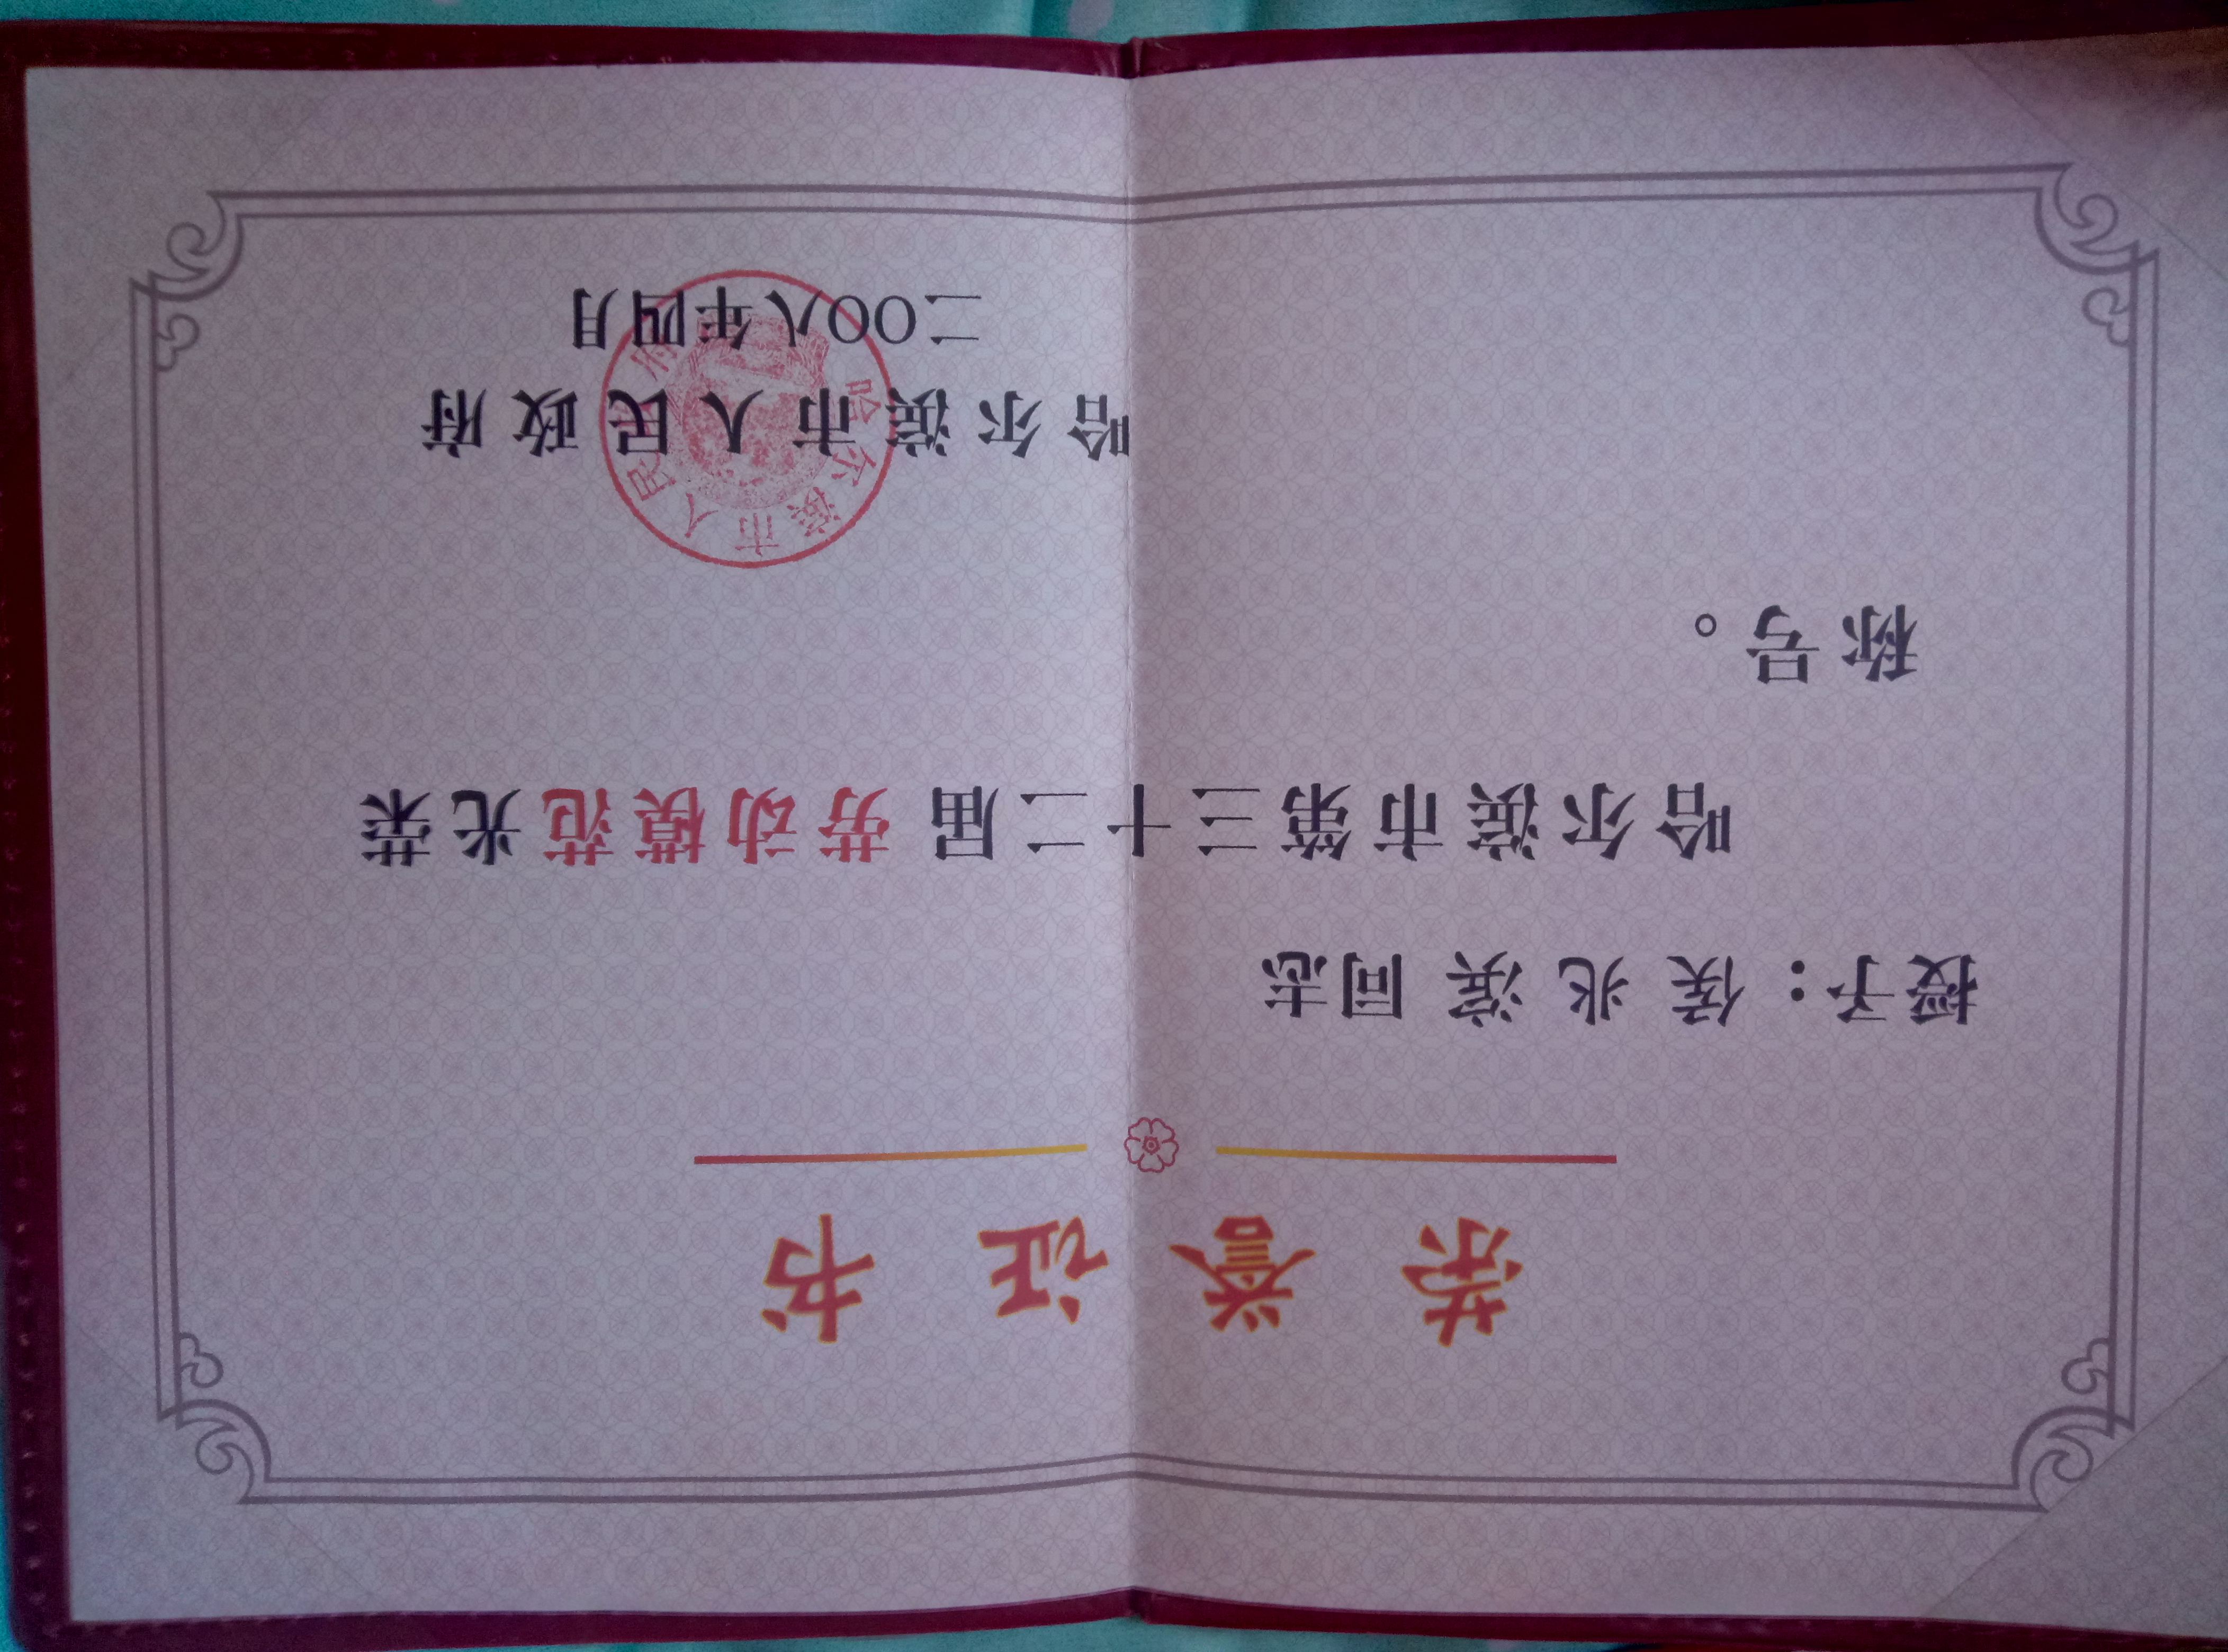 荣誉证书
授予：侯兆滨同志
哈尔滨市第三十二届劳动模范光荣
称号。
哈尔滨市人民政府
二〇〇八年四月
哈尔滨市人民政府